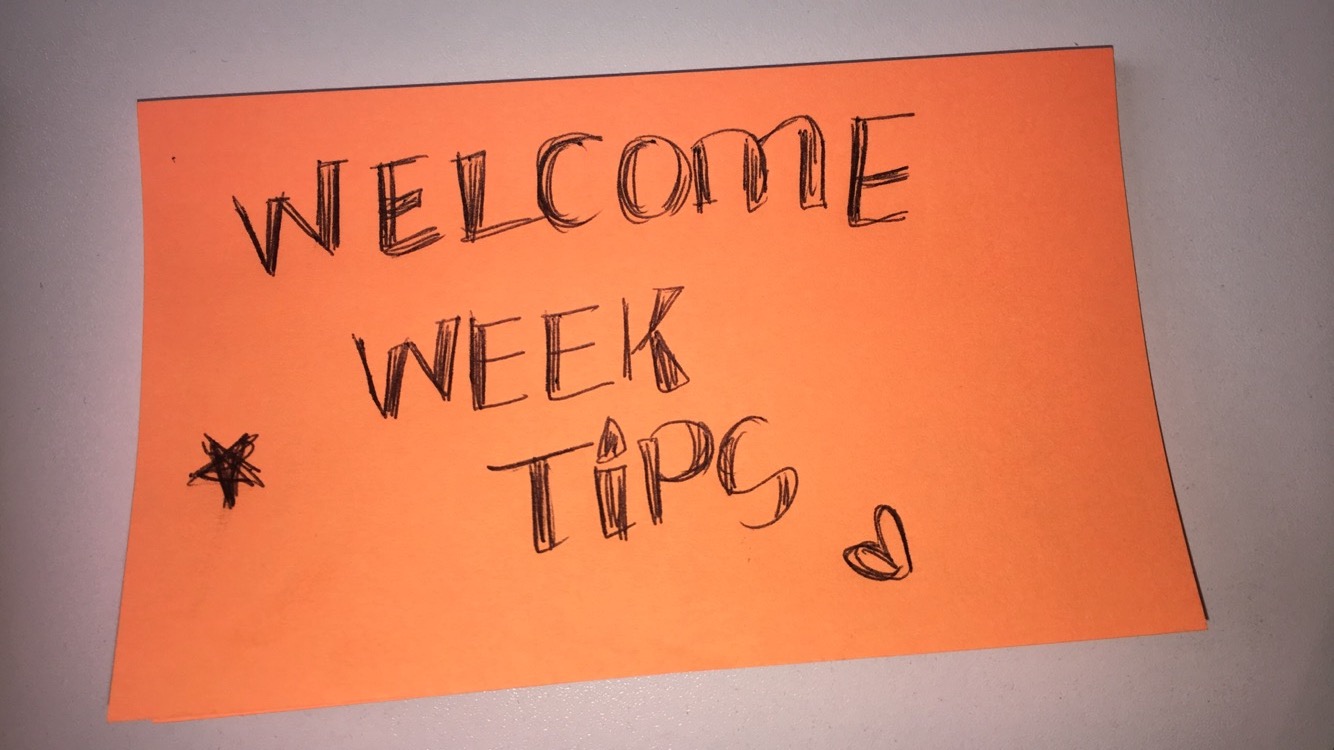 WELCOME
WEEK
TiPS